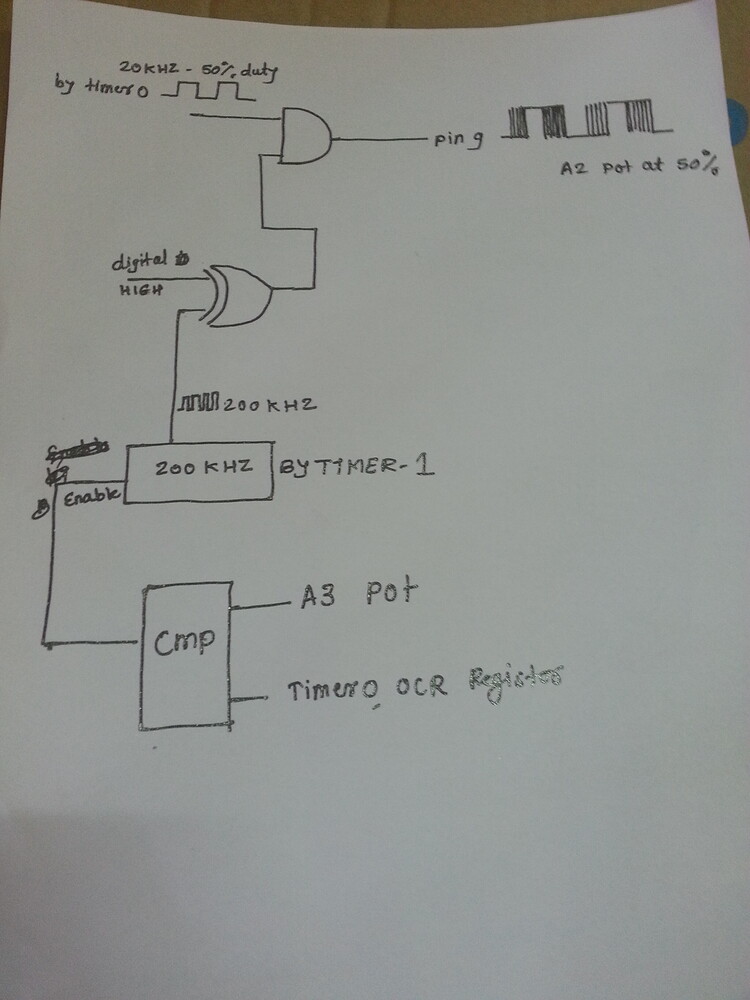 20KHZ - 50% duty
by timer0
pin 9
A2 Pot at 50%
digital
HIGH
200 KHZ
200 KHZ BY TIMER-1
Enable
A3 Pot
Cmp
Timer0 OCR Register